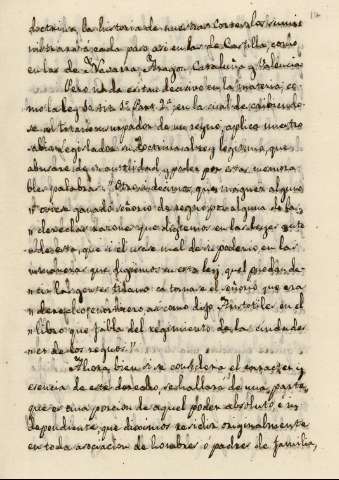 doctrina, la historia de nuestras Cortes los sumi-
nistrará a cada paso, asi en las de Castilla, como
en las de Navarra, Aragon, Cataluña y Valencia.
Pero nada es tan decisivo en la materia, co-
mo la ley 10. tit. 1º Part. 2ª, en la cual describiendo-
se al tirano usurpador de un reyno, aplicó nuestro
sabio legislador su doctrina al rey legitimo, que
abusare de su autoridad y poder por estas memora-
bles palabras. "Otrosi decimos, que maguer alguno
"oviese ganado señorio de regno por alguna de la
"derechas razones que dixiemos en las leyes ante
"desta, que si él usase mal de su poderio en las
"maneras que dixiemos en esta ley, quel puedan de-
"cir las gentes tirano, e tornase el señorio que era
"derecho en torticero, asi como dixo Aristotiles en el
"libro que fabla del regimiento de las cibdades
"et de los regnos."
Ahora bien, si se considera el caracter y
esencia de este derecho, se hallara de una parte,
que es una porcion de aquel poder absoluto é in-
dependiente, que diximos residir originalmente
en toda asociacion de hombres o padres de familia,